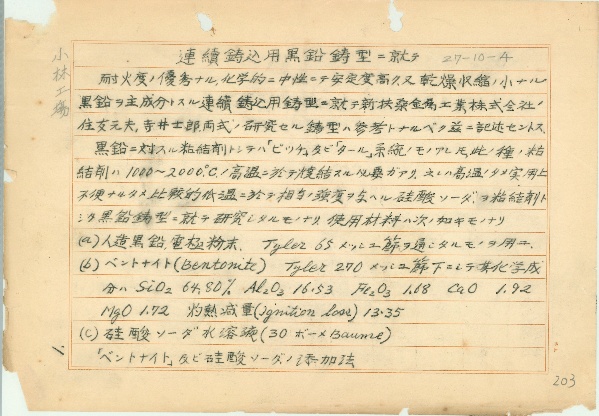 連續鋳込用黒鉛鋳型ニ就テ 27-10-4
小林工場
耐火度ノ優秀ナル, 化学的ニ中性ニテ安定度高ク又乾燥収縮ノ小ナル
黒鉛ヲ主成分トスル連續鋳込用鋳型ニ就テ新扶桑金属工業株式会社ノ
住友元夫, 寺井士郎両式ノ研究セル鋳型ハ参考トナルベク茲ニ記述セントス
黒鉛ニ対スル粘結剤トシテハ「ピッチ」及ビ「タール」系統ノモノアレ共, 此ノ種ノ粘
結剤ハ1000~2000°C.ノ高温ニ於テ焼結スル必要ガアリ, 之レハ高温ノタメ実用上
不便ナルタメ比較的低温ニ於テ相当ノ強度ヲ与ヘル硅酸ソーダヲ粘結剤ト
シタ黒鉛鋳型ニ就テ研究シタルモノナリ 使用材料ハ次ノ如キモノナリ
(a) 人造黒鉛電極粉末. Tyler 65メッシュ篩ヲ通シタルモノヲ用ユ.
(b) ベントナイト(Bentonite) Tyler 270 メッシュ篩下ニシテ其化学成
分ハ SiO2 64.80% Al2O3 16.53 Fe2O3 1.68 CaO 1.92
MgO 1.72 灼熱減量(ignition loss) 13.35
(C) 硅酸ソーダ水溶液(30ボーメBaume)
「ベントナイト」及ビ硅酸ソーダノ添加法
203